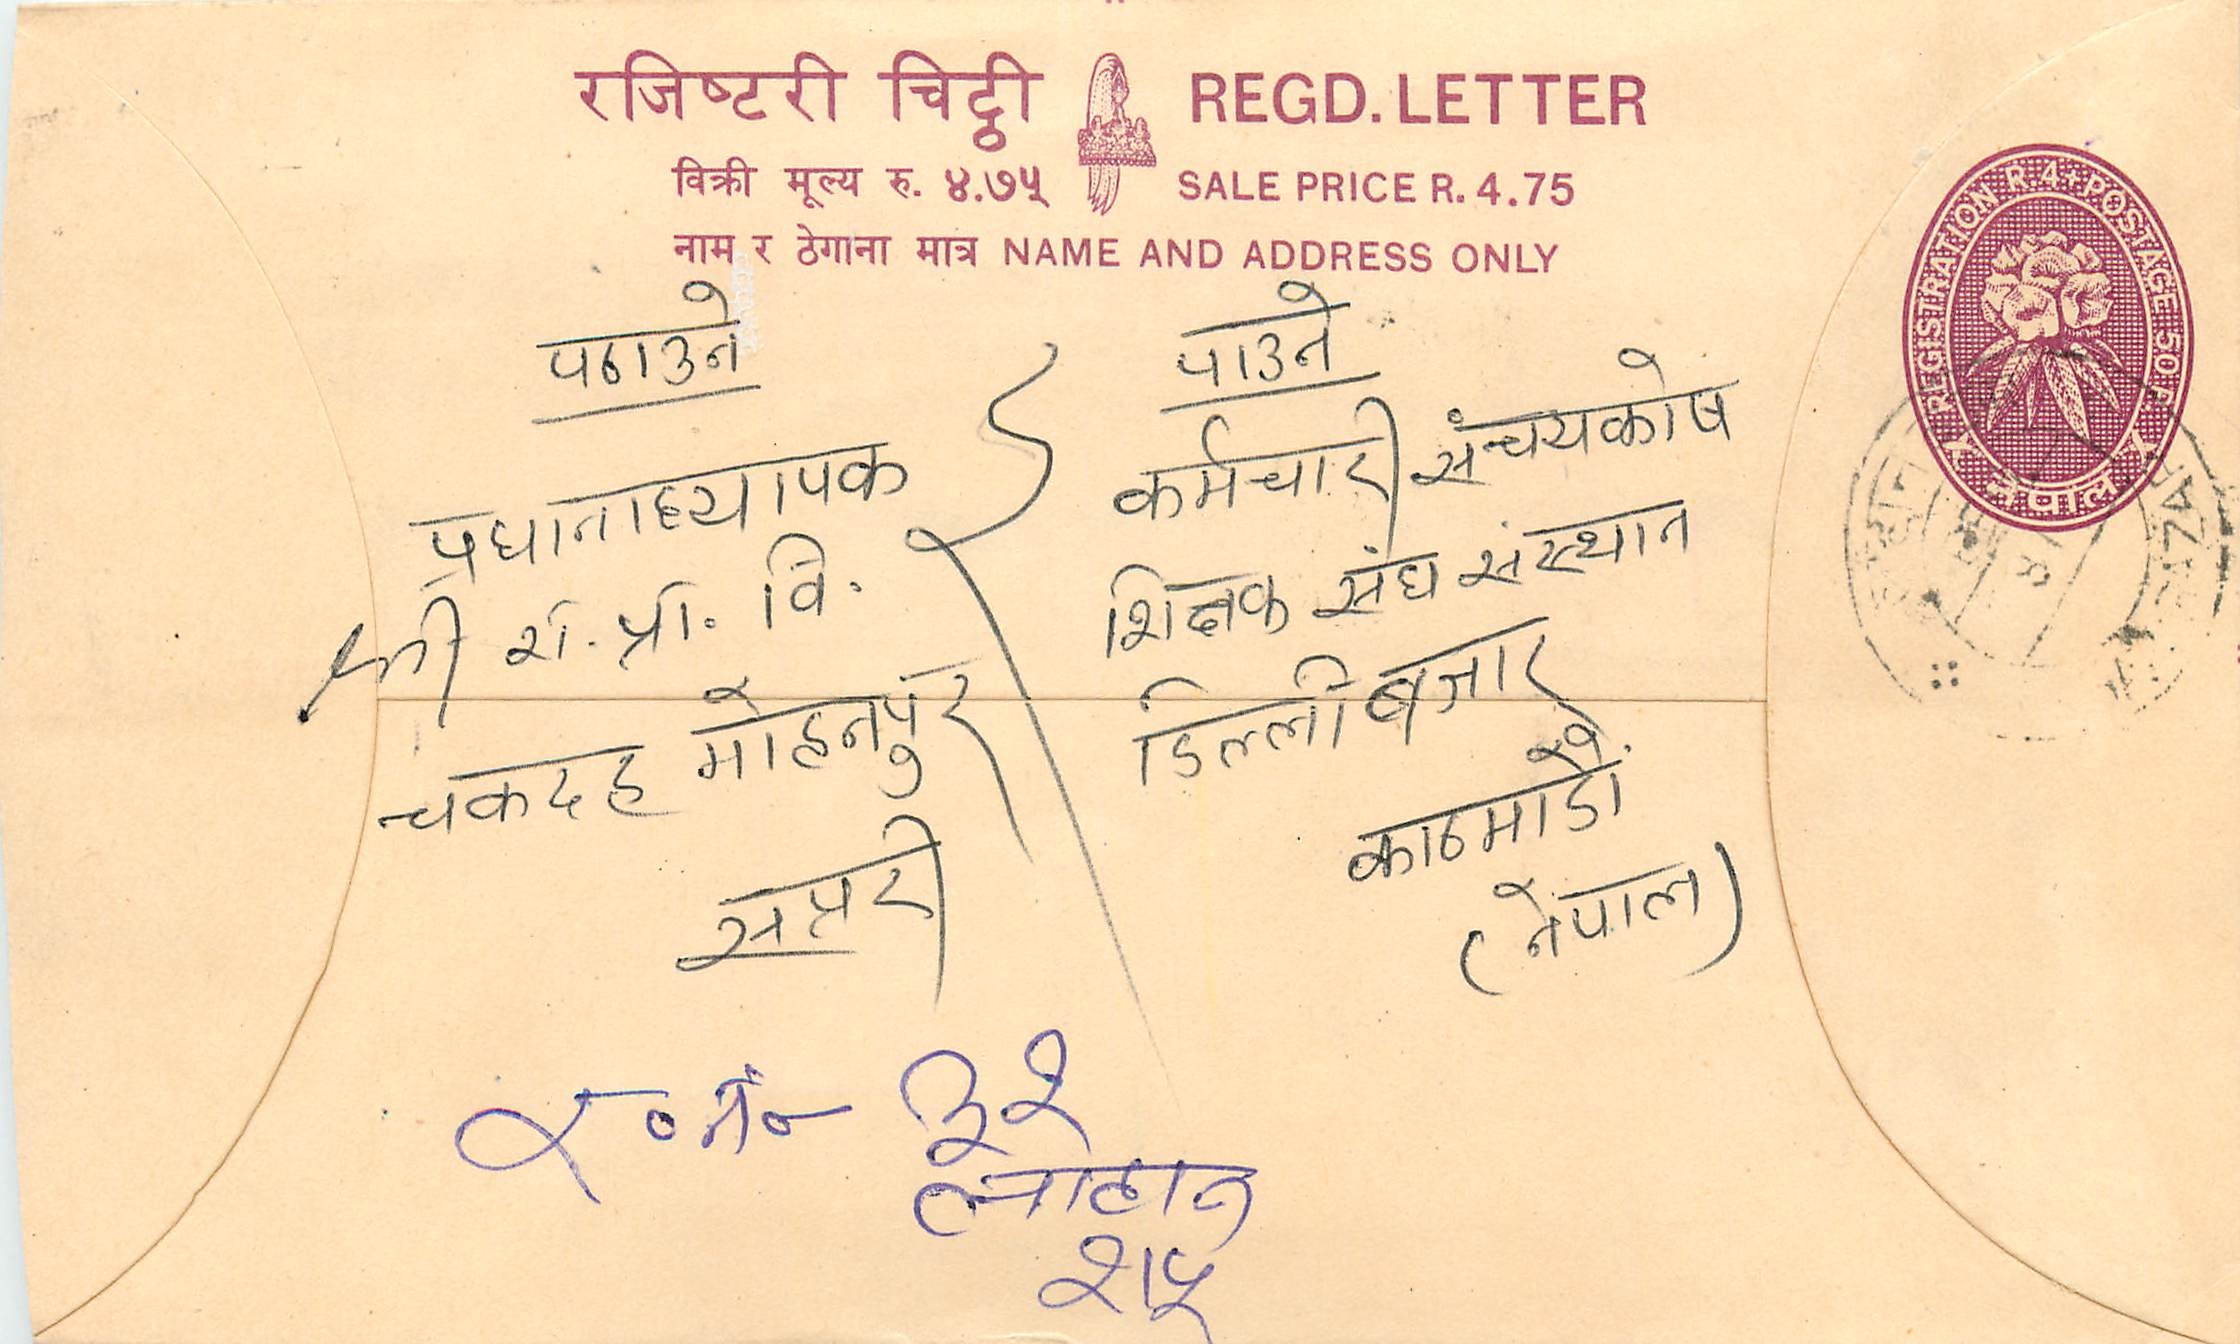 रजिष्टरी चिठ्ठी REGD. LETTER
विक्री मूल्य रु. ४.७५ SALE PRICE R. 4.75
नाम र ठेगाना मात्र NAME AND ADDRESS ONLY
REGISTRATION R.4+POSTAGE.50 P.
नेपाल
पठाउने
प्रधानाध्यापक
श्री रा. प्रा. वि.
चकदह मोहनपुर
सप्तरी
पाउने
कर्मचारी संन्चयकोष
शिक्षक संघ संस्थान
डिल्ली बजार
काठमाडौं
(नेपाल)
र० नं०
लाहान